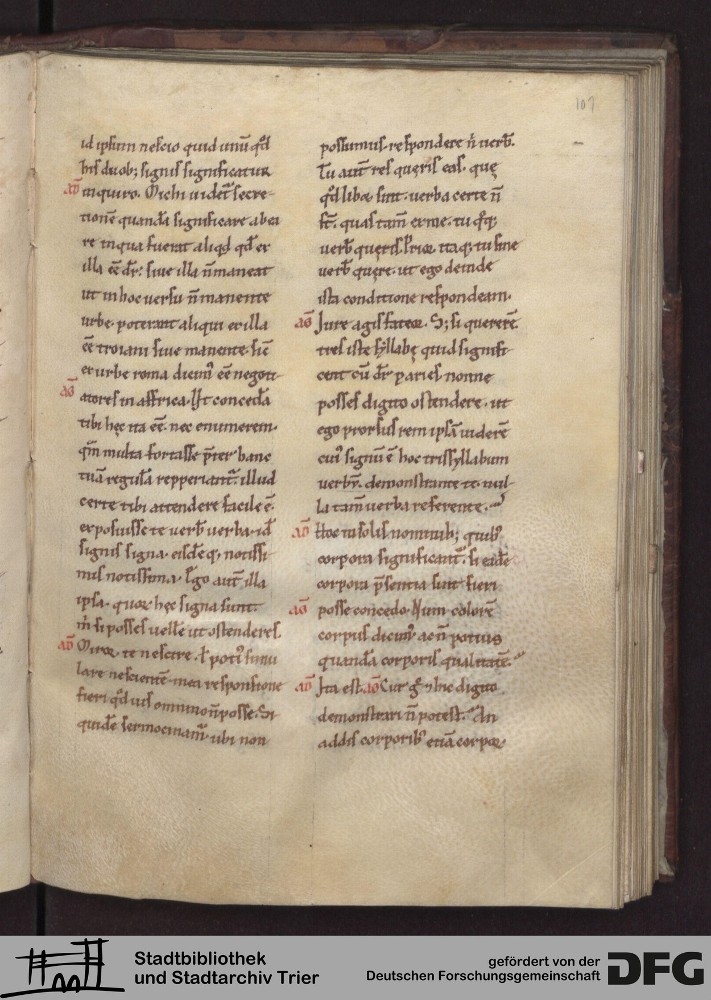 107
id ipsum nescio quid unū qd̄
his duob; signis significatur
AD̄ inquiro. Michi uidet̄ secre-
tionē quandā significare ab ea
re in qua fuerat aliqd qd̄ ex
illa eē dr̄: siue illa n̄ maneat
ut in hoc uersu n̄ manente
urbe. poterant aliqui ex illa
eē troiani siue manente. sic̄
ex urbe roma dicim' eē negoti-
AḠ atores in affrica. Ut concedā
tibi hęc ita eē. nec enumerem.
qm̄ multa fortasse p̄ter hanc
tuā regulā repperiant̄. illud
certe tibi attendere facile ē.
exposuisse te uerb' uerba. id ē
signis signa. eisdē q; notissi-
mis notissima. Ego aut̄ illa
ipsa. quoꝝ hęc signa sunt.
m̄ si posses uellē ut ostenderes.
AD̄ Miror te nescire. ł poti' simu
lare nescientē. mea responsione
fieri qd̄ uis omnino n̄ posse. Si
quidē sermocinam̄. ubi non
possumus respondere n̄ uerb'.
Tu aut̄ res queris eas. quę
qd̄ libꝫ sint. uerba certe n̄
st̄. quas tam̄ ex me. tu qq;
uerb' quęris. Prior itaq; tu sine
uerb' quęre. ut ego deinde
ista conditione respondeam.
AḠ Iure agis fateor. S; si quererē
tres iste syllabę quid signifi-
cent cū dr̄ paries. nonne
posses digito ostendere. ut
ego prorsus rem ipsā uiderē
cui' signū ē hoc trissyllabum
uerbū. demonstrante te. nul-
la tam̄ uerba referente.
AD̄ Hoc in solis nominib; quib'
corpora significant̄. si eadē
corpora p̄sentia sint fieri
AḠ posse concedo. Num colorē
corpus dicim'. ac n̄ potius
quandā corporis qualitatē.
AD̄ Ita est. AḠ Cur g̊ ⁊ hic digito
demonstrari n̄ potest. An
addis corporib' etiā corpoꝝ
Stadtbibliothek
und Stadtarchiv Trier
gefördert von der
Deutschen Forschungsgemeinschaft
DFG